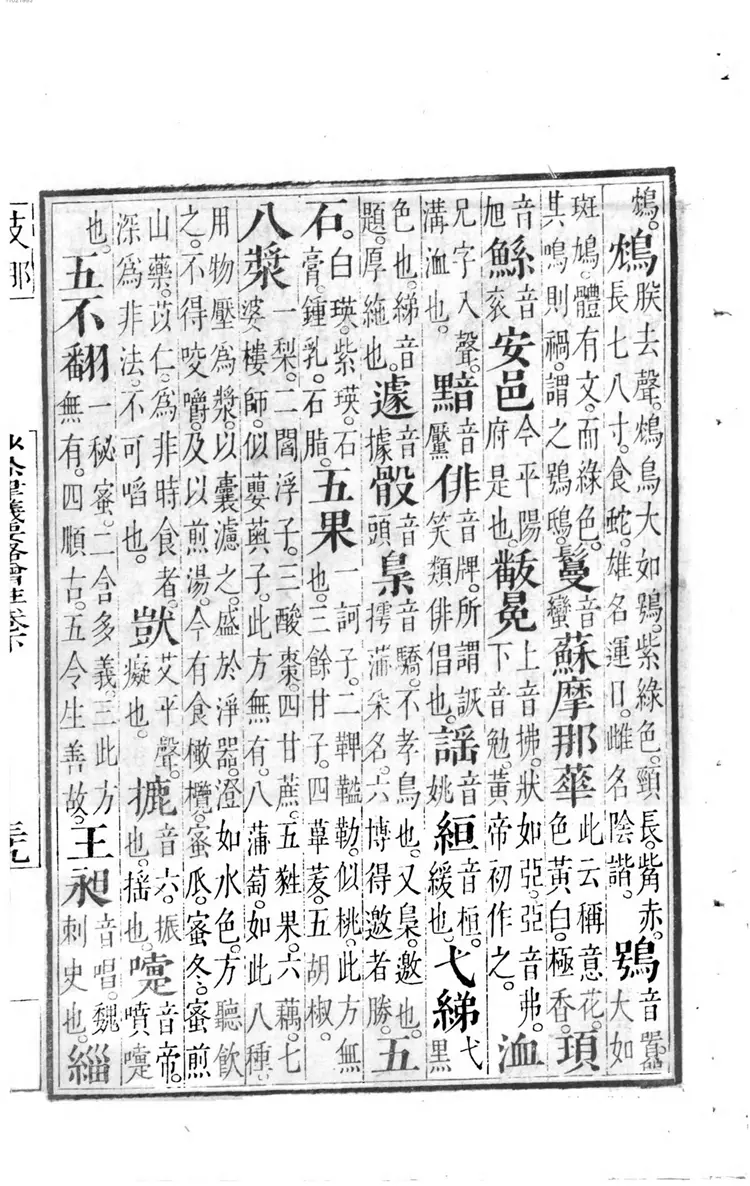 鴆。鴆朕去聲。鴆鳥大如鴞。紫綠色。頸長。觜赤。長七八寸。食蛇。雄名運日。雌名陰諧。鴞音囂。大如
斑鳩。體有文。而綠色。其鳴則禍。謂之鴞鴟。鬘音蠻蘇摩那華此云稱意花。色黃白。極香。頊
音旭鯀音衮安邑今平陽府是也。黻冕上音拂。狀如亞。亞音弗。下音勉。黃帝初作之。洫
兄字入聲。溝洫也。黯音黶俳音牌。所謂詼笑類俳倡也。謠音姚絙音桓。緩也。弋綈弋黑
色也。綈音題。厚絁也。遽音據骰音頭梟音驕。不孝鳥也。又梟。邀也。摴蒲朵名。六博得邀者勝。五
石。白瑛。紫瑛。石膏。鍾乳。石脂。五果一訶子。二鞞醯勒。似桃。此方無也。三餘甘子。四蓽茇。五胡椒。
八漿一梨。二閻浮子。三酸棗。四甘蔗。五甤果。六藕。七婆樓師。似蘡薁子。此方無有。八蒲萄。如此八種。
用物壓為漿。以囊濾之。盛於淨器。澄如水色。方聽飲之。不得咬嚼。及以煎湯。今有食橄欖。蜜瓜。蜜冬。蜜煎
山藥。苡仁。為非時食者。深為非法。不可啗也。獃艾平聲。癡也。摝音六。振也。搖也。嚏音帝。噴嚏
也。五不翻一秘蜜。二含多義。三此方無有。四順古。五令生善故。王昶音唱。魏刺史也。緇
支那
律儀要畧會註卷下
三九